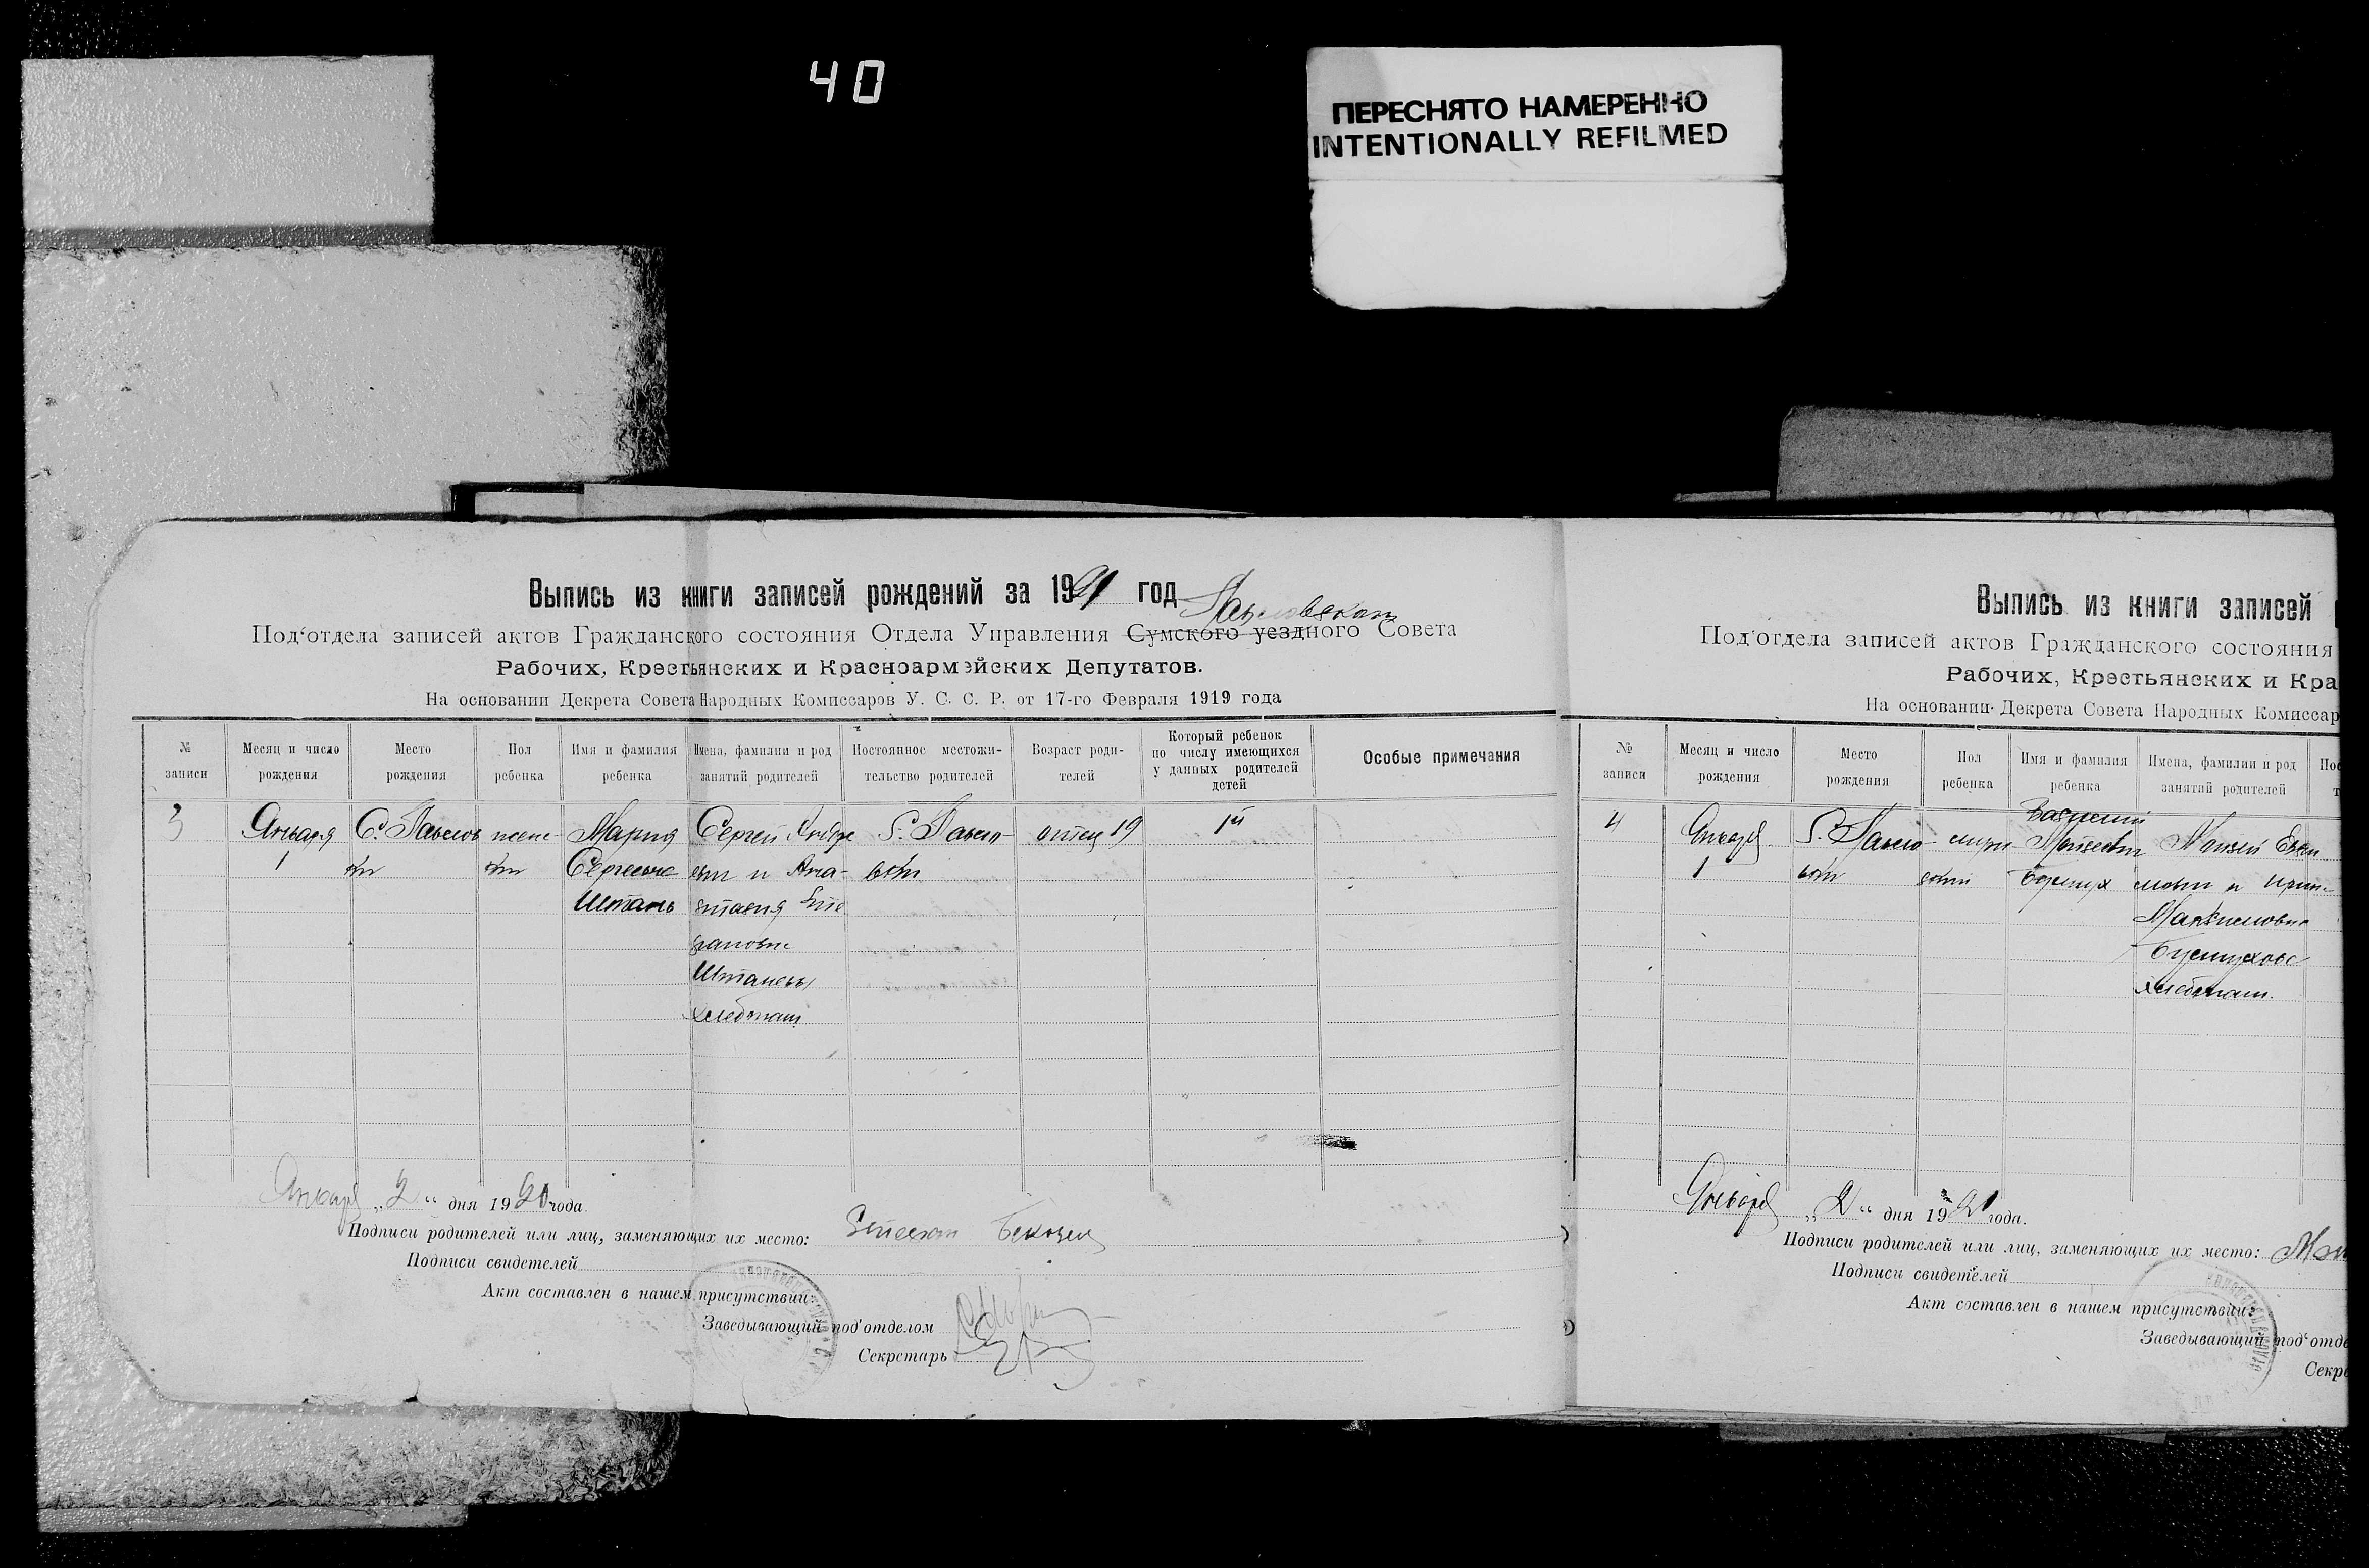 40
ПЕРЕСНЯТО НАМЕРЕННО
INTENTIONALLY REFILMED
Выпись из книги записей рождений за 1921 год
Под'отдела записей актов Гражданского состояния Отдела Управления Сумского уездного Совета
Рабочих, Крестьянских и Красноармейских Депутатов.
На основании Декрета Совета Народных Комиссаров У. С. С. Р. от 17-го Февраля 1919 года
№ записи
Месяц и число рождения
Место рождения
Пол ребенка
Имя и фамилия ребенка
Имена, фамилии и род занятий родителей
Постоянное местожительство родителей
Возраст родителей
Который ребенок по числу имеющихся у данных родителей детей
Особые примечания
3
Января
1
С. Павлов
женс-
Мария
Сергеевна
Штань
Сергей Андре
евич и Ана-
стасия Сте
пановна
С. Павло-
отец 19
1й
Января „2“ дня 1921 года.
Подписи родителей или лиц, заменяющих их место: Степан
Подписи свидетелей
Акт составлен в нашем присутствии:
Заведывающий под'отделом
Секретарь
Выпись из книги записей
Под'отдела записей актов Гражданского состояния
Рабочих, Крестьянских и Кра
На основании Декрета Совета Народных Комиссар
№ записи
Месяц и число рождения
Место рождения
Пол ребенка
Имя и фамилия ребенка
Имена, фамилии и род занятий родителей
4
Января
1
С. Павло-
Василий
Моисеевич
Моисей
Максимовна
Января „2“ дня 1921 года.
Подписи родителей или лиц, заменяющих их место:
Подписи свидетелей
Акт составлен в нашем присутствии:
Заведывающий под'отде
Секре